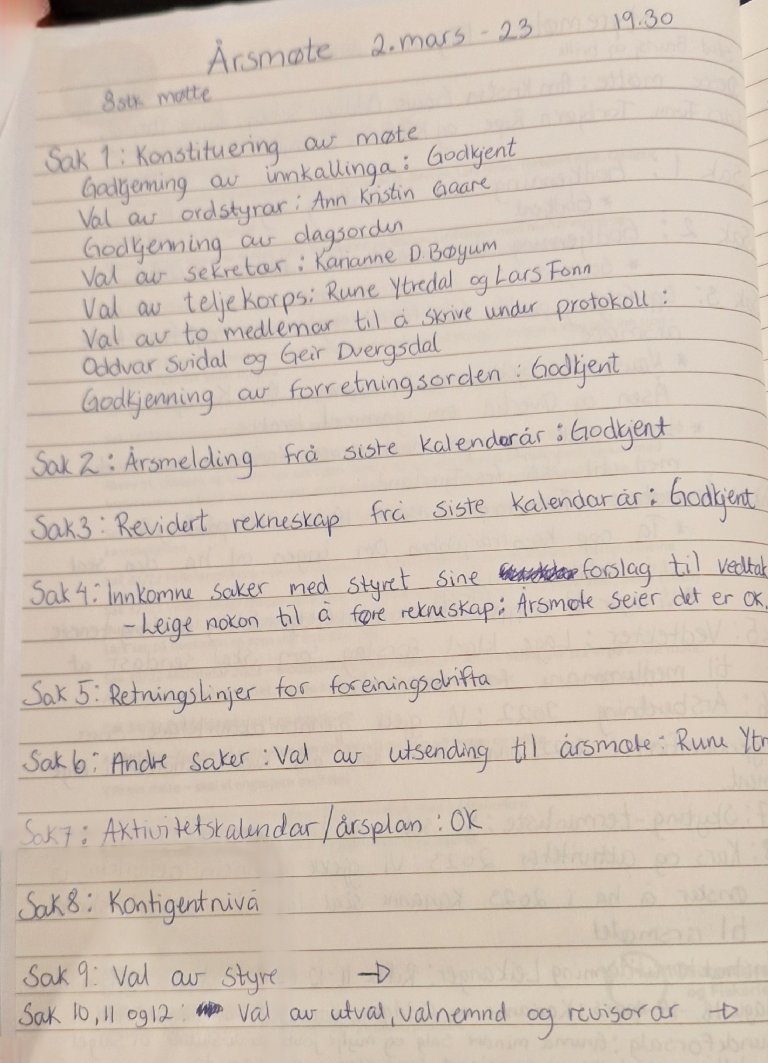 Årsmøte 2. mars - 23 19.30
8 stk. møtte
Sak 1: Konstituering av møte
Godkjenning av innkallinga: Godkjent
Val av ordstyrar: Ann Kristin Gaare
Godkjenning av dagsorden
Val av sekretær: Karianne D. Bøyum
Val av teljekorps: Rune Ytredal og Lars Fonn
Val av to medlemar til å skrive under protokoll:
Oddvar Svidal og Geir Dvergsdal
Godkjenning av forretningsorden: Godkjent
Sak 2: Årsmelding frå siste kalenderår: Godkjent
Sak 3: Revidert rekneskap frå siste kalendarår: Godkjent
Sak 4: Innkomne saker med styret sine forslag til vedtak
- Leige nokon til å føre rekneskap: Årsmøte seier det er OK.
Sak 5: Retningslinjer for foreiningsdrifta
Sak 6: Andre saker: Val av utsending til årsmøte: Rune Ytr
Sak 7: Aktivitetskalendar/årsplan: OK
Sak 8: Kontigentnivå
Sak 9: Val av styre →
Sak 10, 11 og 12: Val av utval, valnemnd og revisorar →